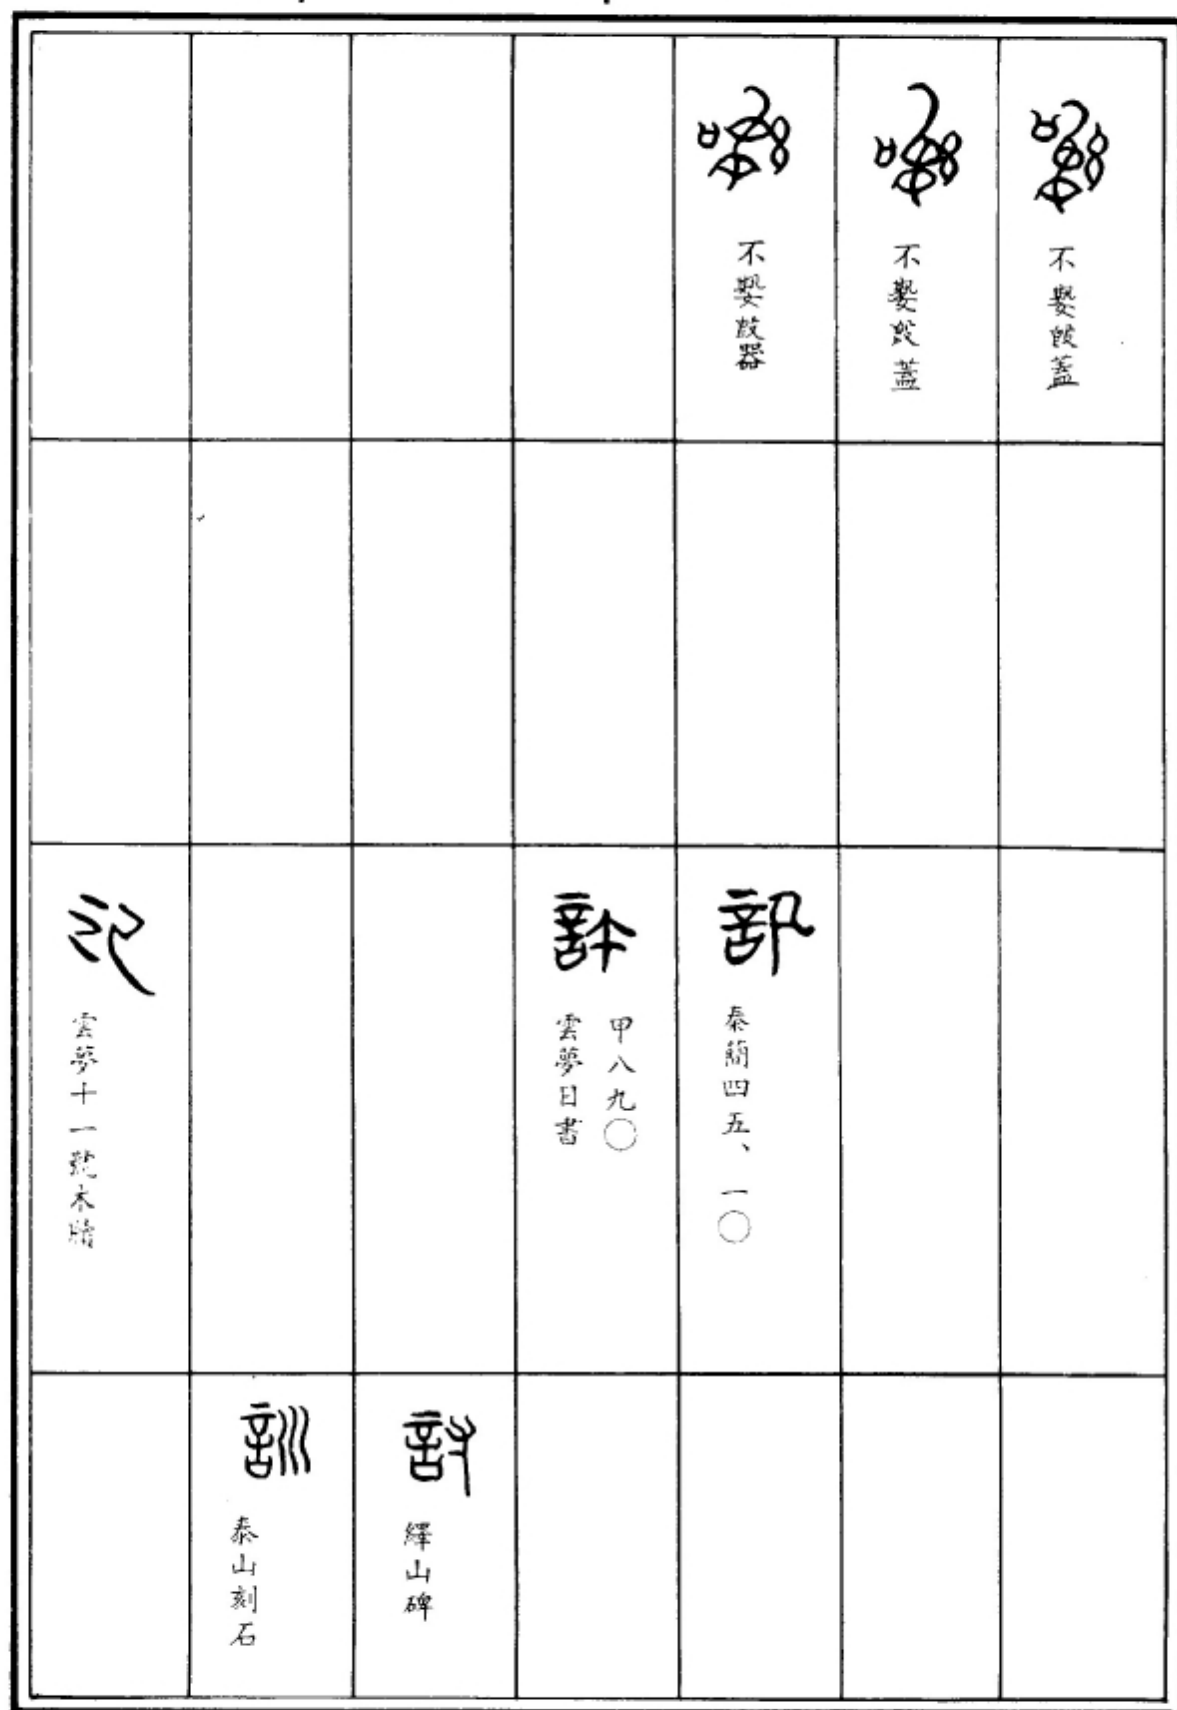 不㜏𣪘蓋
不㜏𣪘蓋
不㜏𣪘器
訊
秦簡四五、一〇
甲八九〇
雲夢日書
記
雲夢十一號木牘
討
繹山碑
訓
泰山刻石